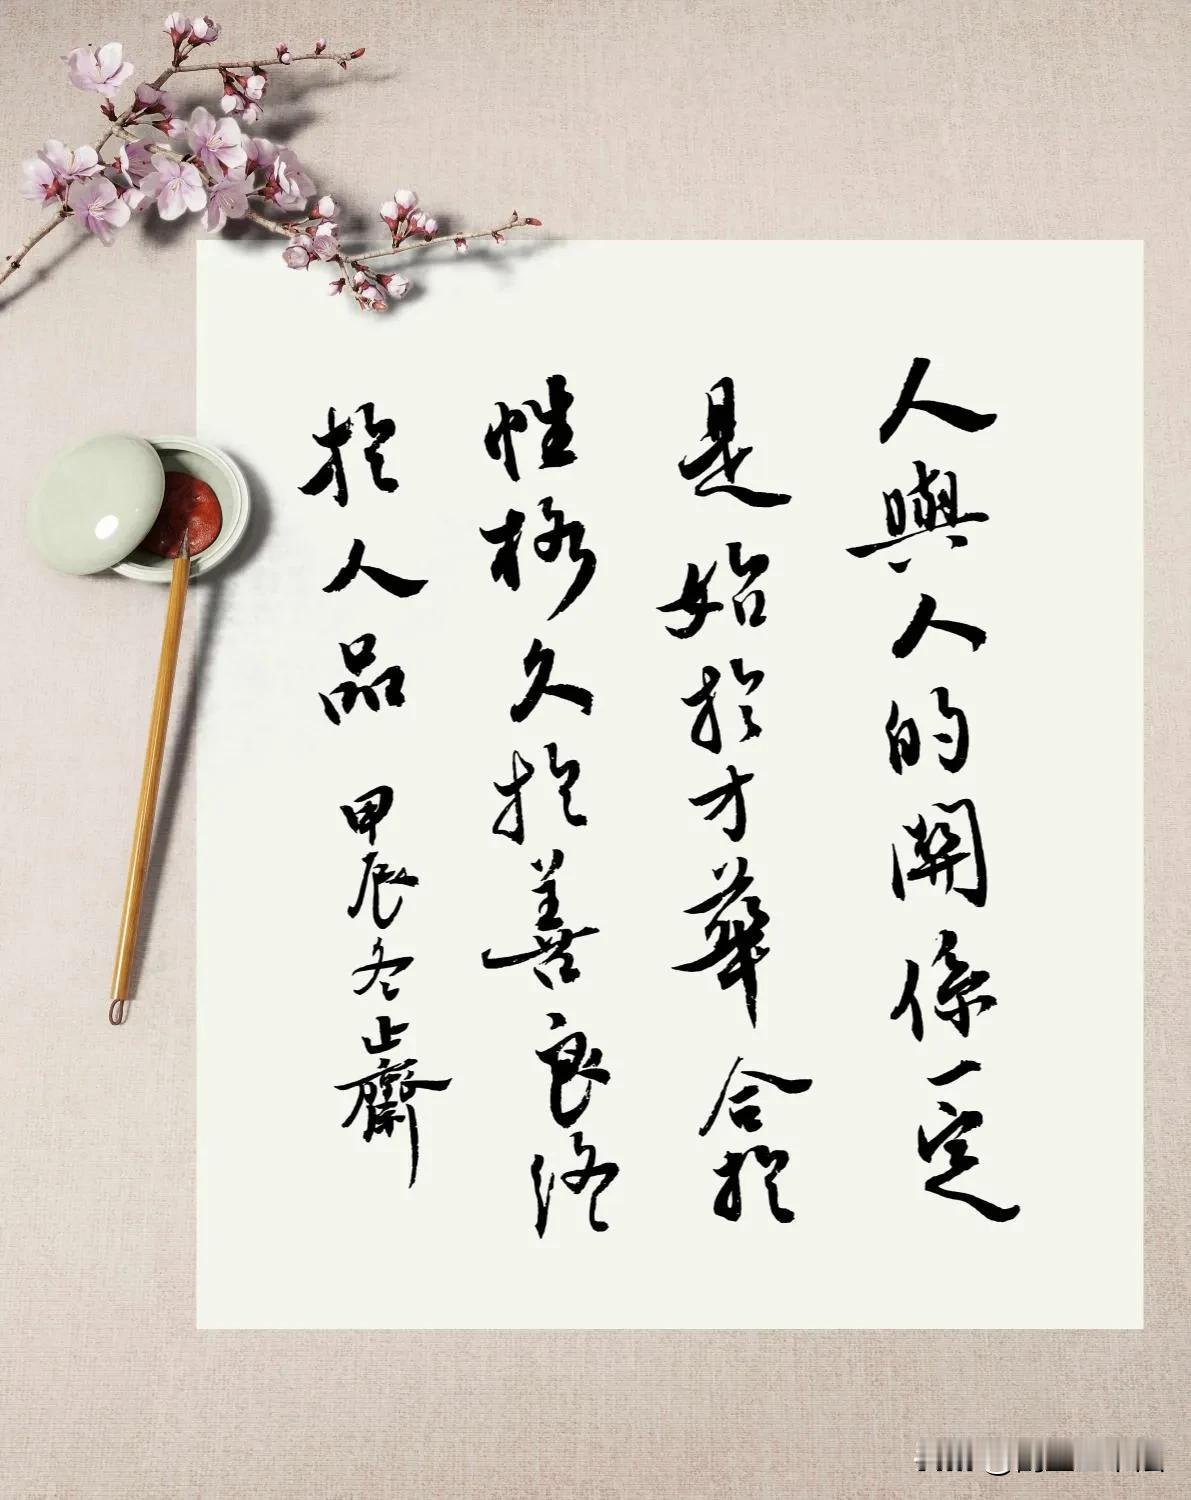 人與人的關係一定
是始於才華合於
性格久於善良終
於人品 甲辰冬止齋